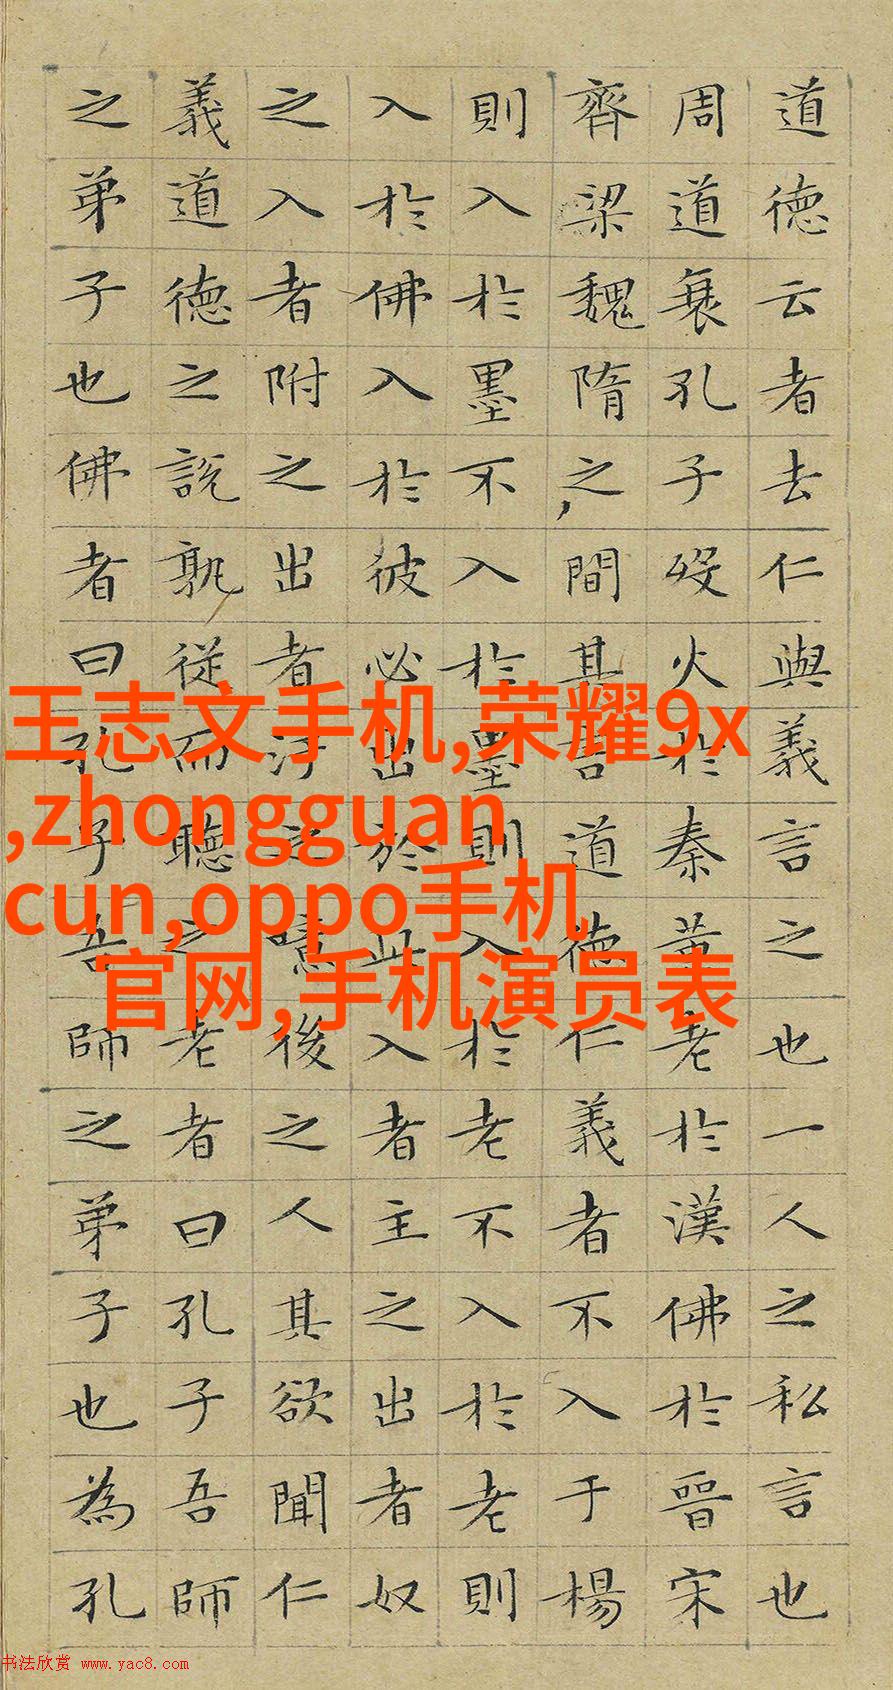 道德云者去仁與義言之也一人之私言也
周道衰孔子歿火於秦黃老於漢佛於晉宋
齊梁魏隋之間其言道德仁義者不入于楊
則入於墨不入於墨則入於老不入於老則
入於佛入於彼必出於此入者主之出者奴
之入者附之出者汙之噫後之人其欲聞仁
義道德之說孰從而聽之老者曰孔子吾師
之弟子也佛者曰孔子吾師之弟子也為孔
王志文手机,荣耀9x
,zhongguan
cun,oppo手机
官网,手机演员表
书法欣赏 www.yac8.com